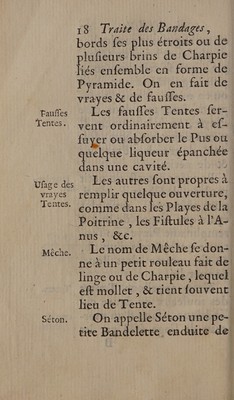 18 Traite des Bandages,
bords ſes plus étroits ou de
pluſieurs brins de Charpie
liés enſemble en forme de
Pyramide. On en fait de
vrayes & de fauſſes.
Fauſſes Tentes.
Les fauſſes Tentes ſer-
vent ordinairement à eſ-
ſuyer ou abſorber le Pus ou
quelque liqueur épanchée
dans une cavité.
Uſage des vrayes Tentes.
Les autres ſont propres à
remplir quelque ouverture,
comme dans les Playes de la
Poitrine, les Fiſtules à l'A-
nus, &c.
Mêche.
Le nom de Mêche ſe don-
ne à un petit rouleau fait de
linge ou de Charpie, lequel
eſt mollet, & tient ſouvent
lieu de Tente.
Séton.
On appelle Séton une pe-
tite Bandelette enduite de